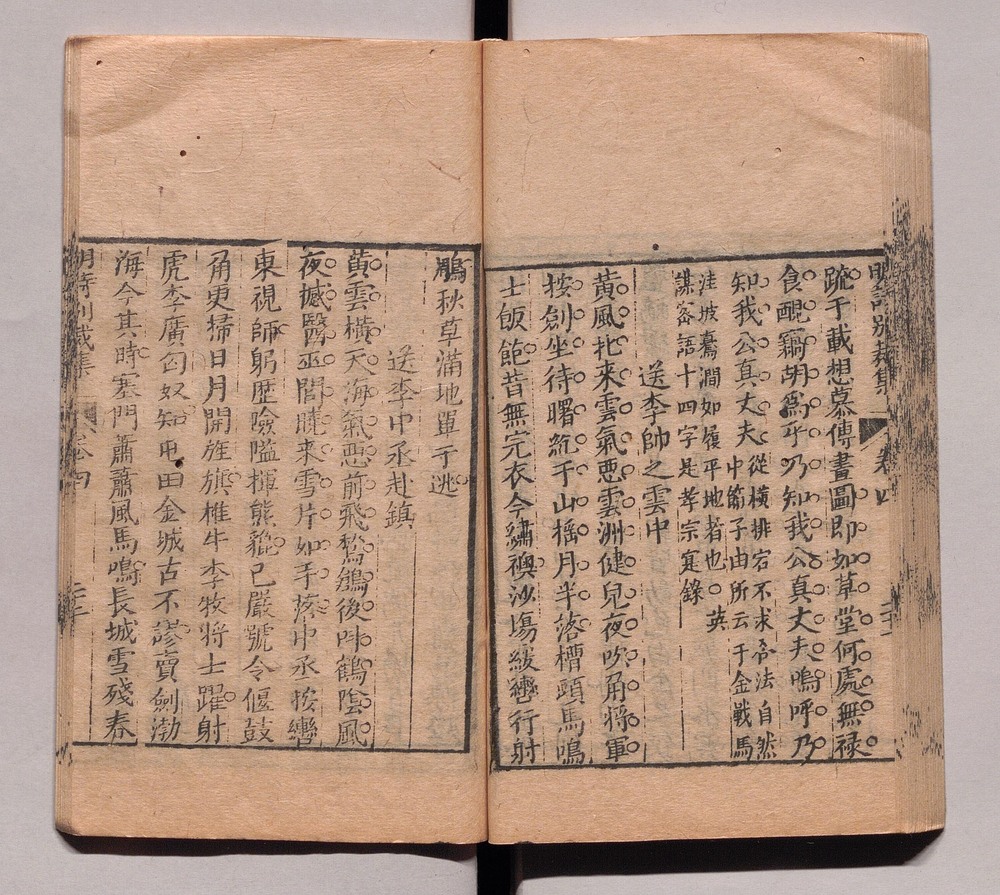 明詩別裁集 卷四
疏于載想慕傳畫圖即如草堂何處無祿
食覼羈胡為乎乃知我公真丈夫嗚呼乃
知我公真丈夫從橫排宕不求合法自然
中節子由所云千金戰馬
注坡驀澗如履平地者也英
謀密語十四字是孝宗寔錄
送李帥之雲中
黃風北來雲氣惡雲洲健兒夜吹角將軍
按劍坐待曙紇干山搖月半落槽頭馬鳴
士飯飽昔無完衣今繡襖沙場緩轡行射
鵰秋草滿地單于逃
送李中丞赴鎮
黃雲橫天海氣惡前飛鶖鶬後叫鶴陰風
夜撼醫巫閭曉來雪片如手落中丞按轡
東視師躬歷險隘揮熊貔已嚴號令偃鼓
角更掃日月開旌旗椎牛李牧將士躍射
虎李廣匈奴知屯田金城古不謬賣劍渤
海今其時塞門蕭蕭風馬鳴長城雪殘春
明詩別裁集 卷四